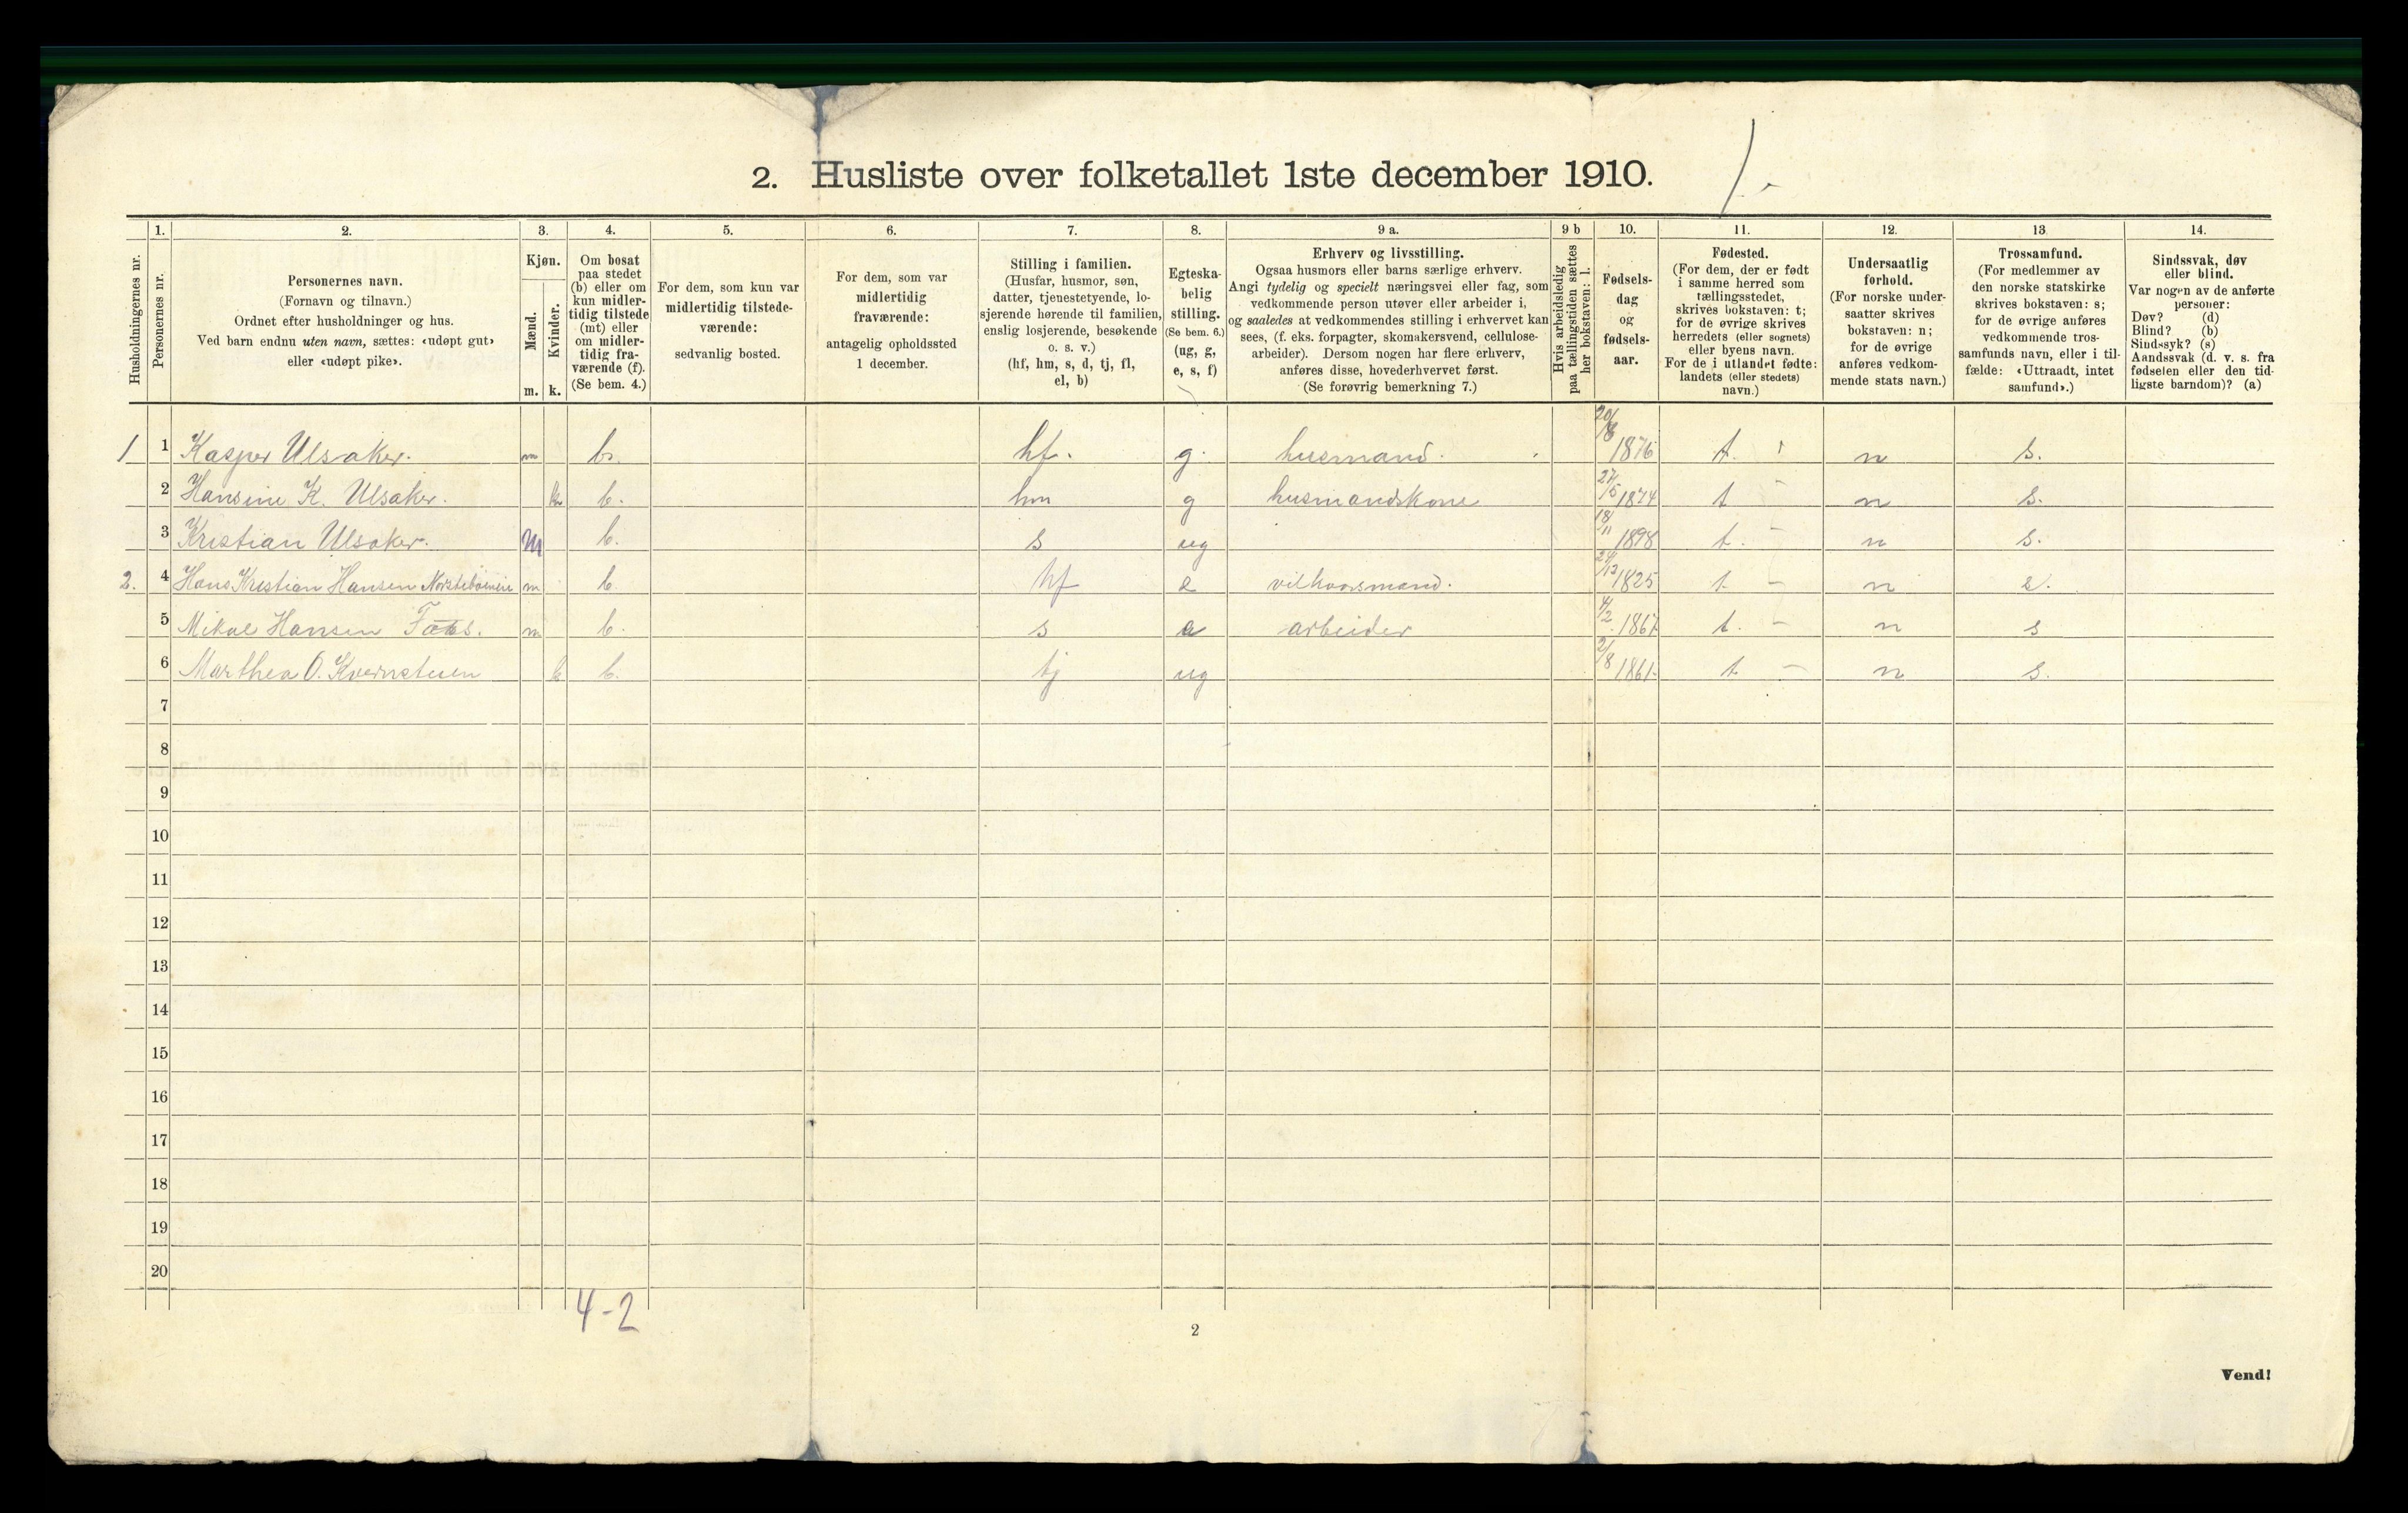 2. Husliste over folketallet 1ste december 1910.
1.
Husholdningernes nr.
1.
Personernes nr.
2.
Personernes navn.
(Fornavn og tilnavn.)
Ordnet efter husholdninger og hus.
Ved barn endnu uten navn, sættes: «udøpt gut»
eller «udøpt pike».
3.
Kjøn.
Mænd.
m.
Kvinder.
k.
4.
Om bosat
paa stedet
(b) eller om
kun midler-
tidig tilstede
(mt) eller
om midler-
tidig fra-
værende (f).
(Se bem. 4.)
5.
For dem, som kun var
midlertidig tilstede-
værende:
sedvanlig bosted.
6.
For dem, som var
midlertidig
fraværende:
antagelig opholdssted
1 december.
7.
Stilling i familien.
(Husfar, husmor, søn,
datter, tjenestetyende, lo-
sjerende hørende til familien,
enslig losjerende, besøkende
o. s. v.)
(hf, hm, s, d, tj, fl,
el, b)
8.
Egteska-
belig
stilling.
(Se bem. 6.)
(ug, g,
e, s, f)
9 a.
Erhverv og livsstilling.
Ogsaa husmors eller barns særlige erhverv.
Angi tydelig og specielt næringsvei eller fag, som
vedkommende person utøver eller arbeider i,
og saaledes at vedkommendes stilling i erhvervet kan
sees, (f. eks. forpagter, skomakersvend, cellulose-
arbeider). Dersom nogen har flere erhverv,
anføres disse, hovederhvervet først.
(Se forøvrig bemerkning 7.)
9 b
Hvis arbeidsledig
paa tællingstiden sættes
her bokstaven: l.
10.
Fødsels-
dag
og
fødsels-
aar.
11.
Fødested.
(For dem, der er født
i samme herred som
tællingsstedet,
skrives bokstaven: t;
for de øvrige skrives
herredets (eller sognets)
eller byens navn.
For de i utlandet fødte:
landets (eller stedets)
navn.)
12.
Undersaatlig
forhold.
(For norske under-
saatter skrives
bokstaven: n;
for de øvrige
anføres vedkom-
mende stats navn.)
13.
Trossamfund.
(For medlemmer av
den norske statskirke
skrives bokstaven: s;
for de øvrige anføres
vedkommende tros-
samfunds navn, eller i til-
fælde: «Uttraadt, intet
samfund».)
14.
Sindssvak, døv
eller blind.
Var nogen av de anførte
personer:
Døv? (d)
Blind? (b)
Sindssyk? (s)
Aandssvak (d. v. s. fra
fødselen eller den tid-
ligste barndom)? (a)
1 1 Kasper Ulsaker. m b. hf. g. husmand. 20/8 1876 t. n s.
2 Hansine K. Ulsaker. k b. hm g husmandskone 27/5 1874 t n s.
3 Kristian Ulsaker. m b. s ug 18/11 1898 t. n s.
2. 4 Hans Kristian Hansen m b. hf e vilkaarsmand. 24/12 1825 t. n s.
5 Mikal Hansen m b. s e arbeider 4/2 1867 t. n s
6 Marthea O. Kvernstuen k b. tj ug 2/8 1861 t n s.
7
8
9
10
11
12
13
14
15
16
17
18
19
20
4-2
2
Vend!